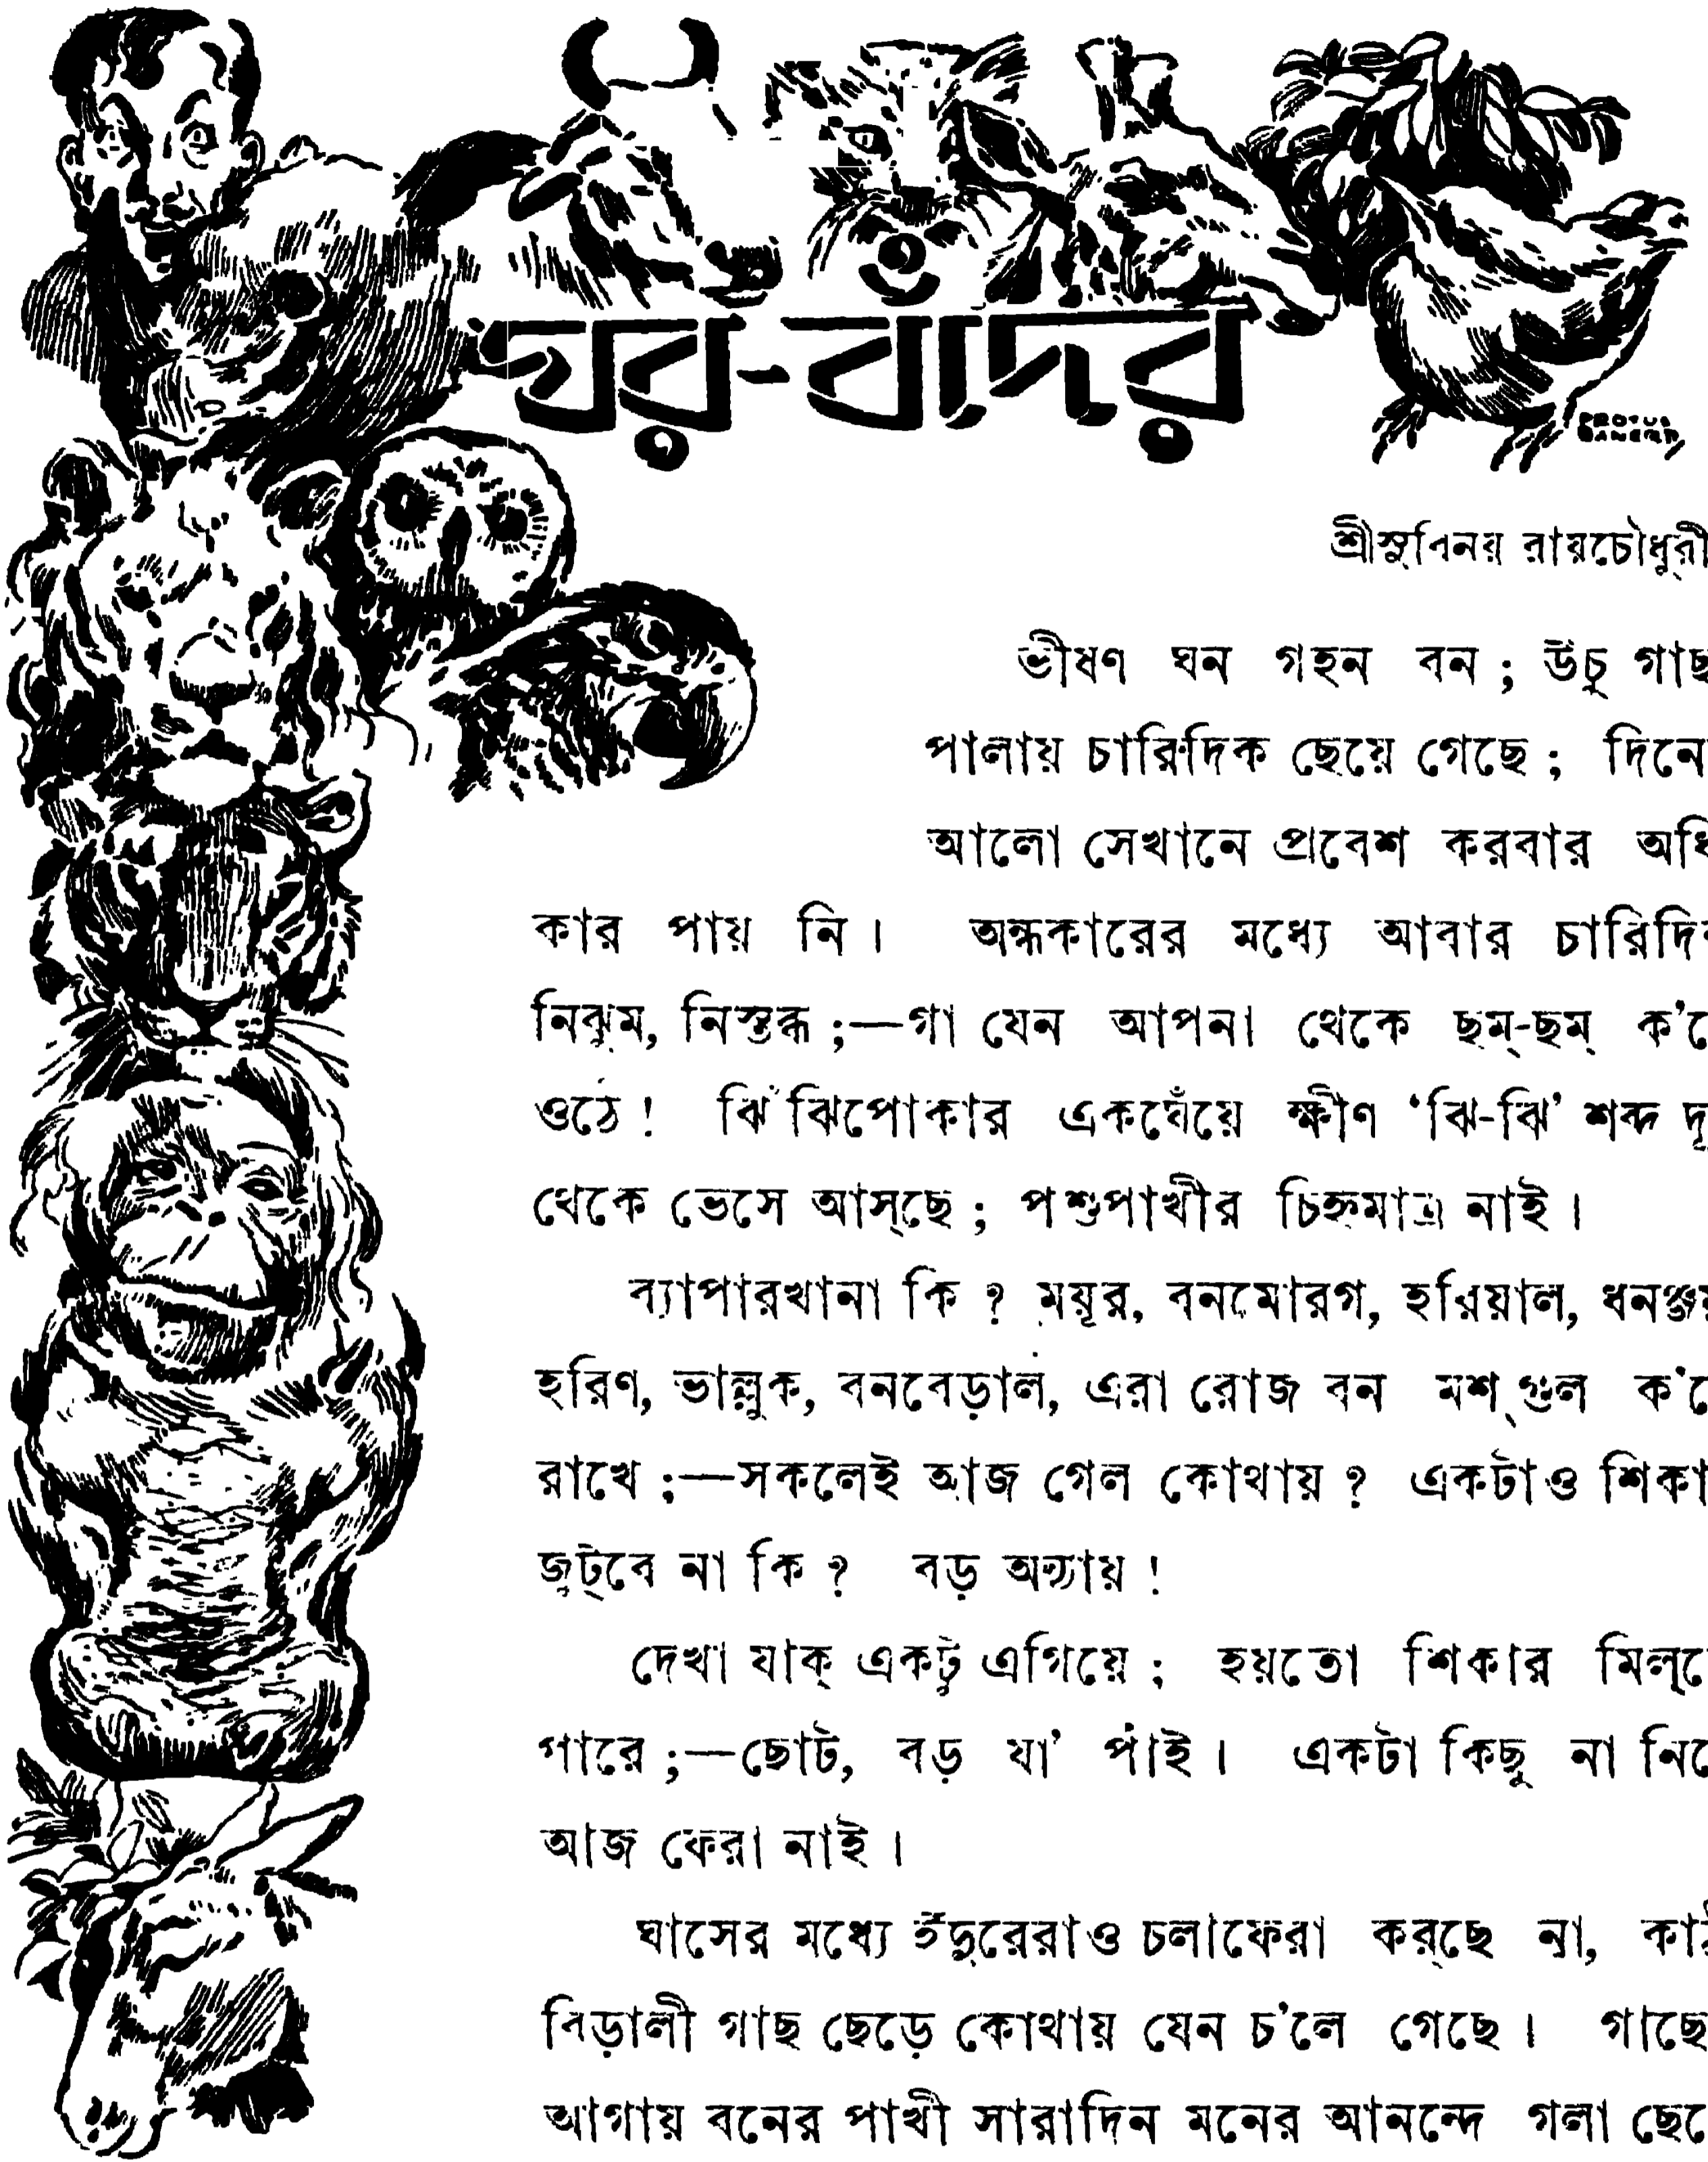 ঘর-বাঁদর
PROTUL BANERJI
শ্রীসুবিনয় রায়চৌধুরী
ভীষণ ঘন গহন বন ; উঁচু গাছ
পালায় চারিদিক ছেয়ে গেছে ; দিনে
আলো সেখানে প্রবেশ করবার অধি
কার পায় নি । অন্ধকারের মধ্যে আবার চারিদি
নিঝুম, নিস্তব্ধ ;—গা যেন আপনা থেকে ছম্-ছম্ ক'
ওঠে ! ঝিঁঝিপোকার একঘেঁয়ে ক্ষীণ ‘ঝি-ঝি’ শব্দ দূ
থেকে ভেসে আস্‌ছে ; পশুপাখীর চিহ্নমাত্র নাই ।
ব্যাপারখানা কি ? ময়ূর, বনমোরগ, হরিয়াল, ধনঞ্জয়
হরিণ, ভাল্লুক, বনবেড়াল, এরা রোজ বন মশ্‌গুল ক'
রাখে ;—সকলেই আজ গেল কোথায় ? একটাও শিকা
জুট্‌বে না কি ? বড় অন্যায় !
দেখা যাক্ একটু এগিয়ে ; হয়তো শিকার মিল্‌
পারে ;—ছোট, বড় যা' পাই । একটা কিছু না নি
আজ ফেরা নাই ।
ঘাসের মধ্যে ইঁদুরেরাও চলাফেরা কর্‌ছে না, কা
বিড়ালী গাছ ছেড়ে কোথায় যেন চ'লে গেছে । গাছে
আগায় বনের পাখী সারাদিন মনের আনন্দে গলা ছে